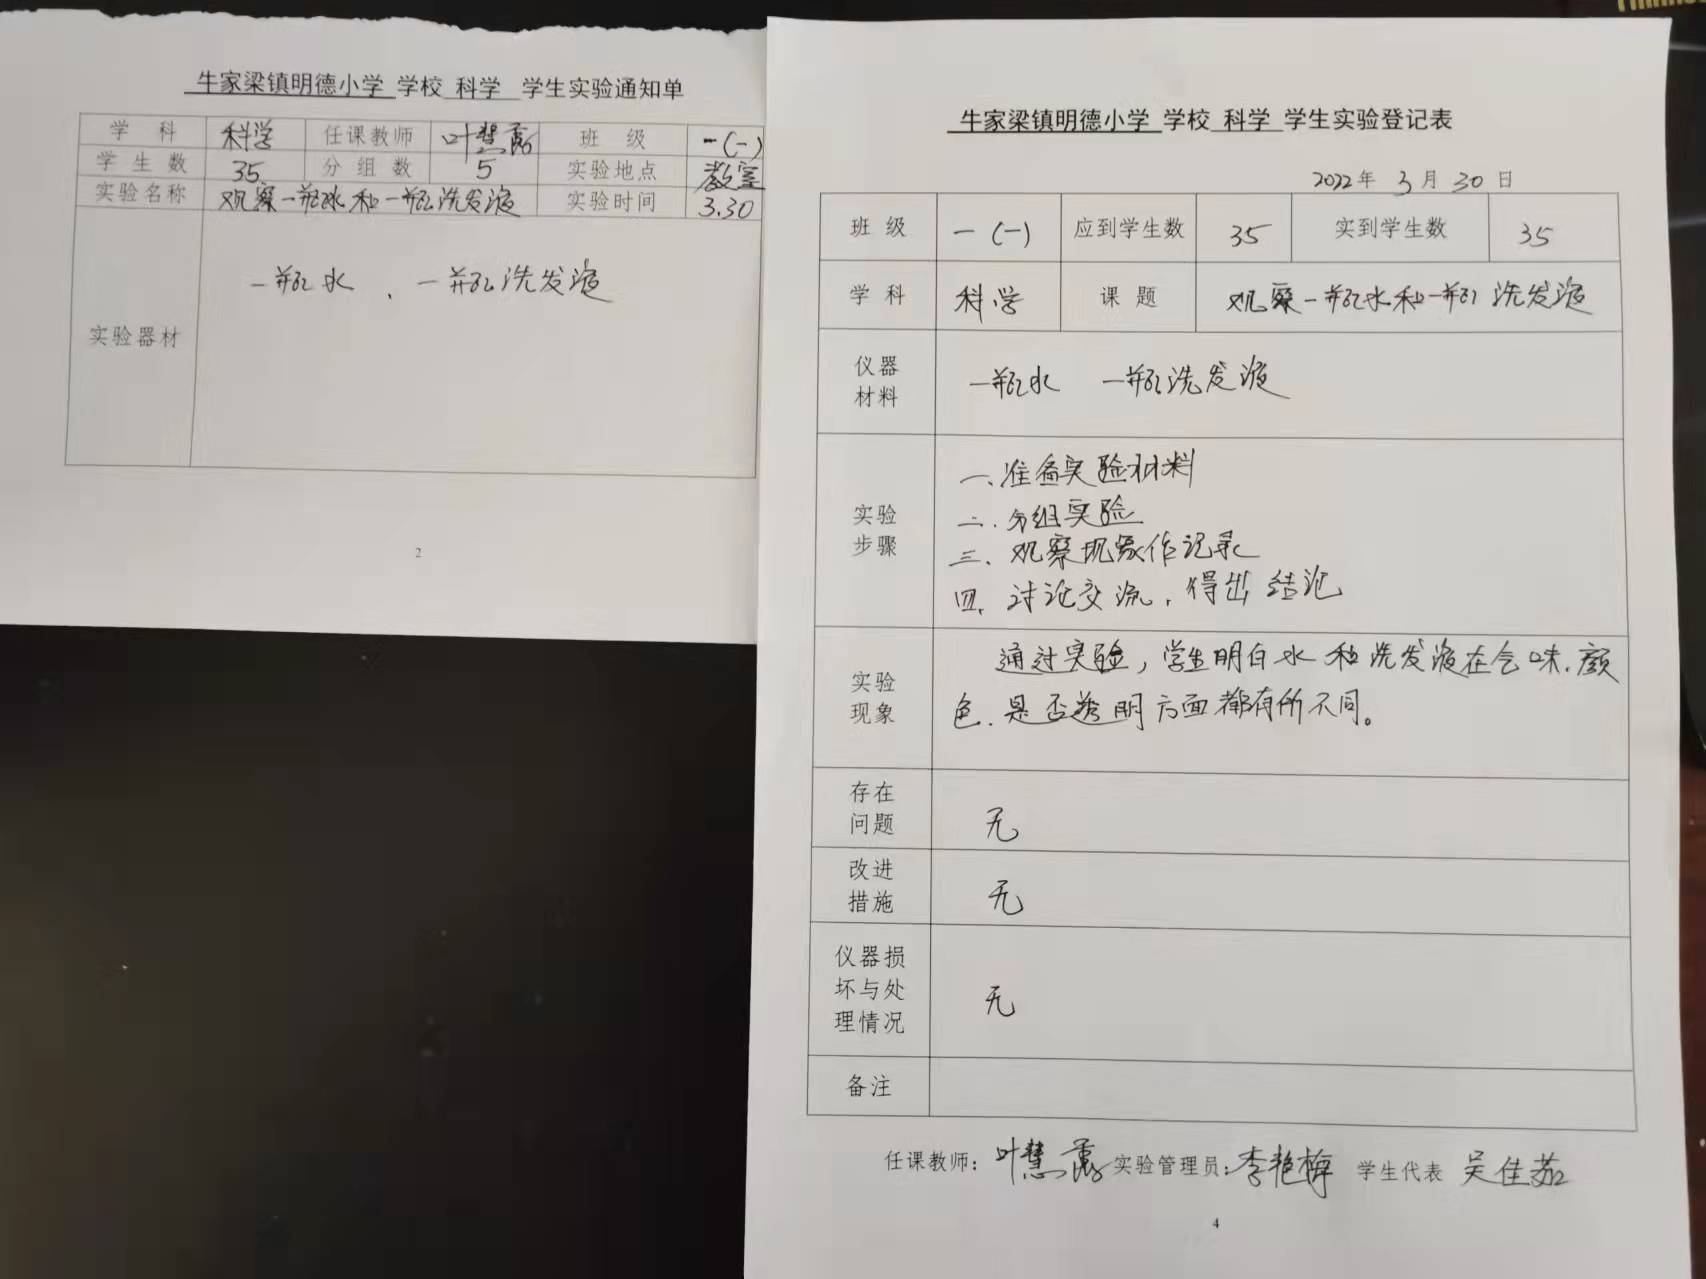 牛家梁镇明德小学 学校 科学 学生实验通知单
学 科 科学 任课教师 叶慧 班 级 一(一)
学 生 数 35 分 组 数 5 实验地点 教室
实验名称 观察一瓶水和一瓶洗发液 实验时间 3.30
实验器材 一瓶水、一瓶洗发液
2
牛家梁镇明德小学 学校 科学 学生实验登记表
2022 年 3 月 30 日
班 级 一(一) 应到学生数 35 实到学生数 35
学 科 科学 课 题 观察一瓶水和一瓶洗发液
仪器
材料
一瓶水 一瓶洗发液
实验
步骤
一、准备实验材料
二、分组实验
三、观察现象作记录
四、讨论交流,得出结论
实验
现象
通过实验,学生明白水和洗发液在气味、颜
色、是否透明方面都有所不同。
存在
问题
无
改进
措施
无
仪器损
坏与处
理情况
无
备注
任课教师: 叶慧 实验管理员: 李艳梅 学生代表 吴佳茹
4